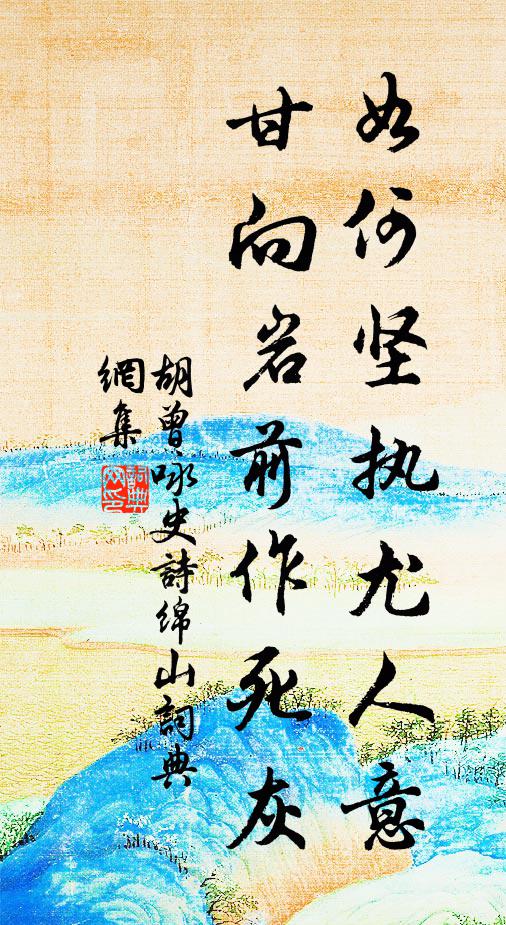 如何坚执尤人意
甘向岩前作死灰
胡曾咏史詩绵山词典
網集